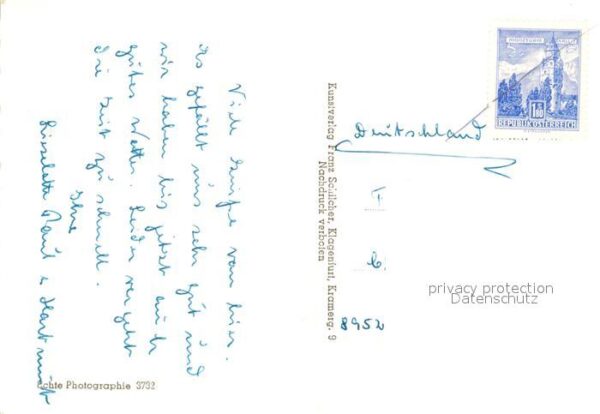 Viele Grüße von hier.
Es gefällt uns sehr gut und
wir haben bis jetzt auch
gutes Wetter. Leider vergeht
die Zeit zu schnell.
Ihre
Lieselotte Paul u. Hartmut
Echte Photographie 3732
Kunstverlag Franz Schilcher, Klagenfurt, Kramerg. 9
Nachdruck verboten
5
1.80
REPUBLIK ÖSTERREICH
Deutschland
T
b.
8952
privacy protection
Datenschutz